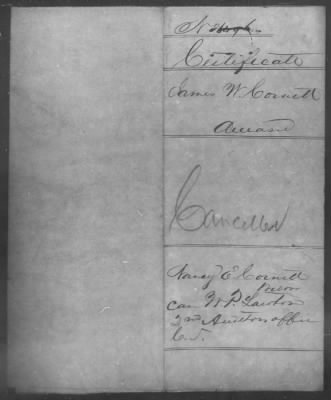 N
Certificate
James W. Cornett
deceased
Cancelled
Nancy E. Cornett
widow
care W. P. Lawton
2nd Auditors office